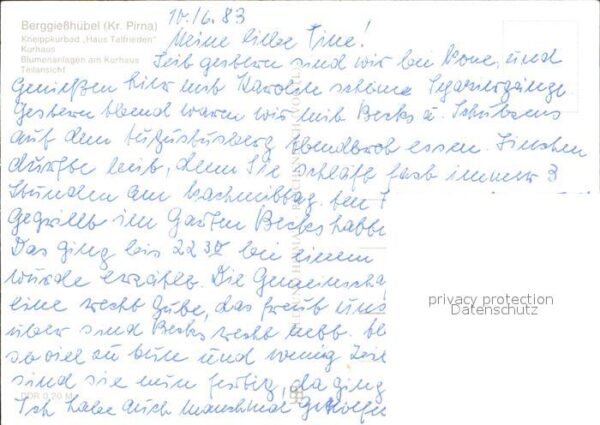 Berggießhübel (Kr. Pirna)
Kneippkurbad „Haus Talfrieden"
Kurhaus
Blumenanlagen am Kurhaus
Teilansicht
10.6.83
Meine liebe Tine!
Seit gestern sind wir bei Kone, und
Genießen hier mit Karolin schöne Spaziergänge
Gestern Abend waren wir mit Becks u. Schulzens
auf dem Augustusberg Abendbrot essen. Linchen
durfte mit, denn Sie schläft fast immer 3
Stunden am Nachmittag.
Gegrillt im Garten Becks
Das ging bis 22 30 bei einem
wurde erzählt. Die Gemeinscha
eine recht Gute, das freut uns
über sind Becks recht nett.
so viel zu tun und wenig Zeit
sind sie nun fertig, da ging
Ich habe auch manchmal Geholfen
DDR 0,20 M
privacy protection
Datenschutz